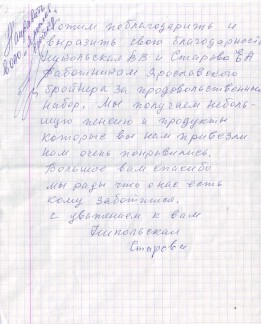 Хотим поблагодарить и
выразить свою благодарность
Никольская В.В и Старова Е А
Работникам Ярославского
бройлера за продовольственный
набор. Мы получаем неболь-
шую пенсию и продукты
которые вы нам привезли
нам очень понравились.
Большое вам спасибо
мы рады что о нас есть
кому заботится.
с уважением к вам
Никольская
Старова